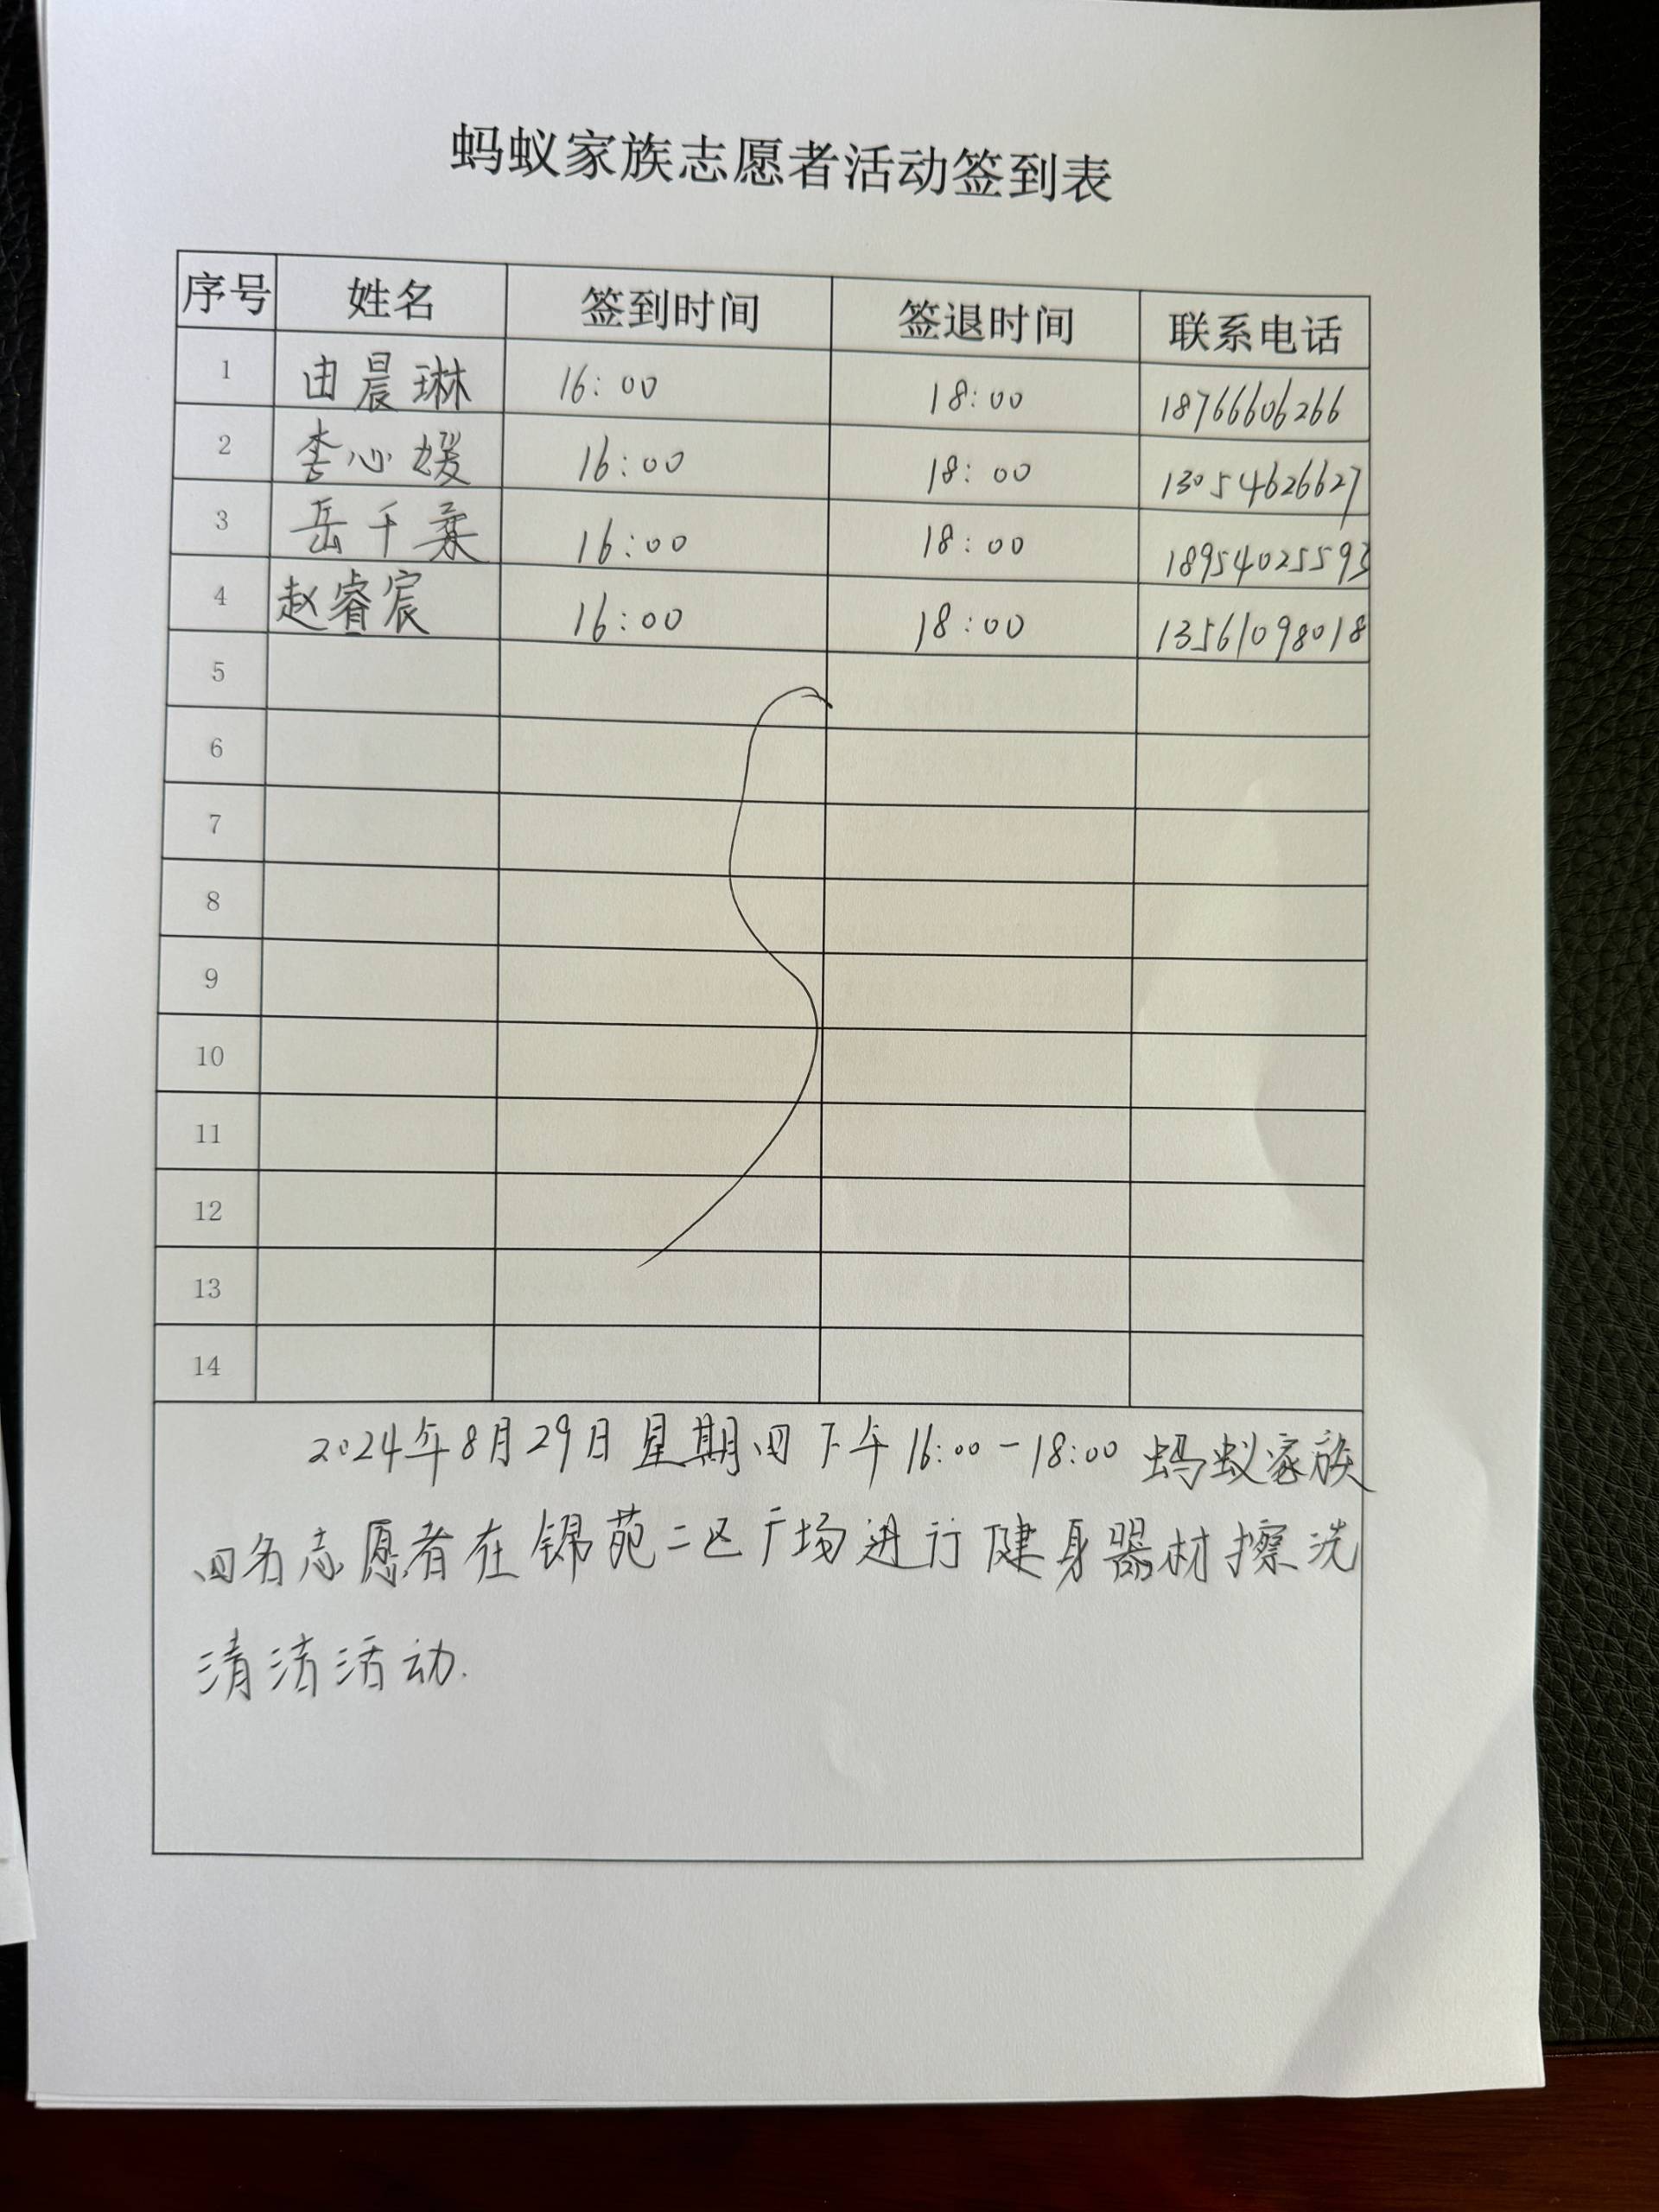 蚂蚁家族志愿者活动签到表
序号 姓名 签到时间 签退时间 联系电话
1 由晨琳 16:00 18:00 18766606266
2 李心媛 16:00 18:00 13054626627
3 岳千乘 16:00 18:00 18954025593
4 赵睿宸 16:00 18:00 13561098018
5
6
7
8
9
10
11
12
13
14
2024年8月29日星期四下午16:00-18:00 蚂蚁家族
四名志愿者在锦苑二区广场进行健身器材擦洗
清洁活动.